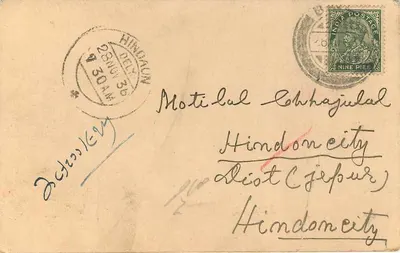 HINDAUN
DELY.
28 NOV 36
7 30 A.M.
INDIA POSTAGE
NINE PIES
Motilal Chhajulal
Hindoncity
Dist (jepur)
Hindoncity